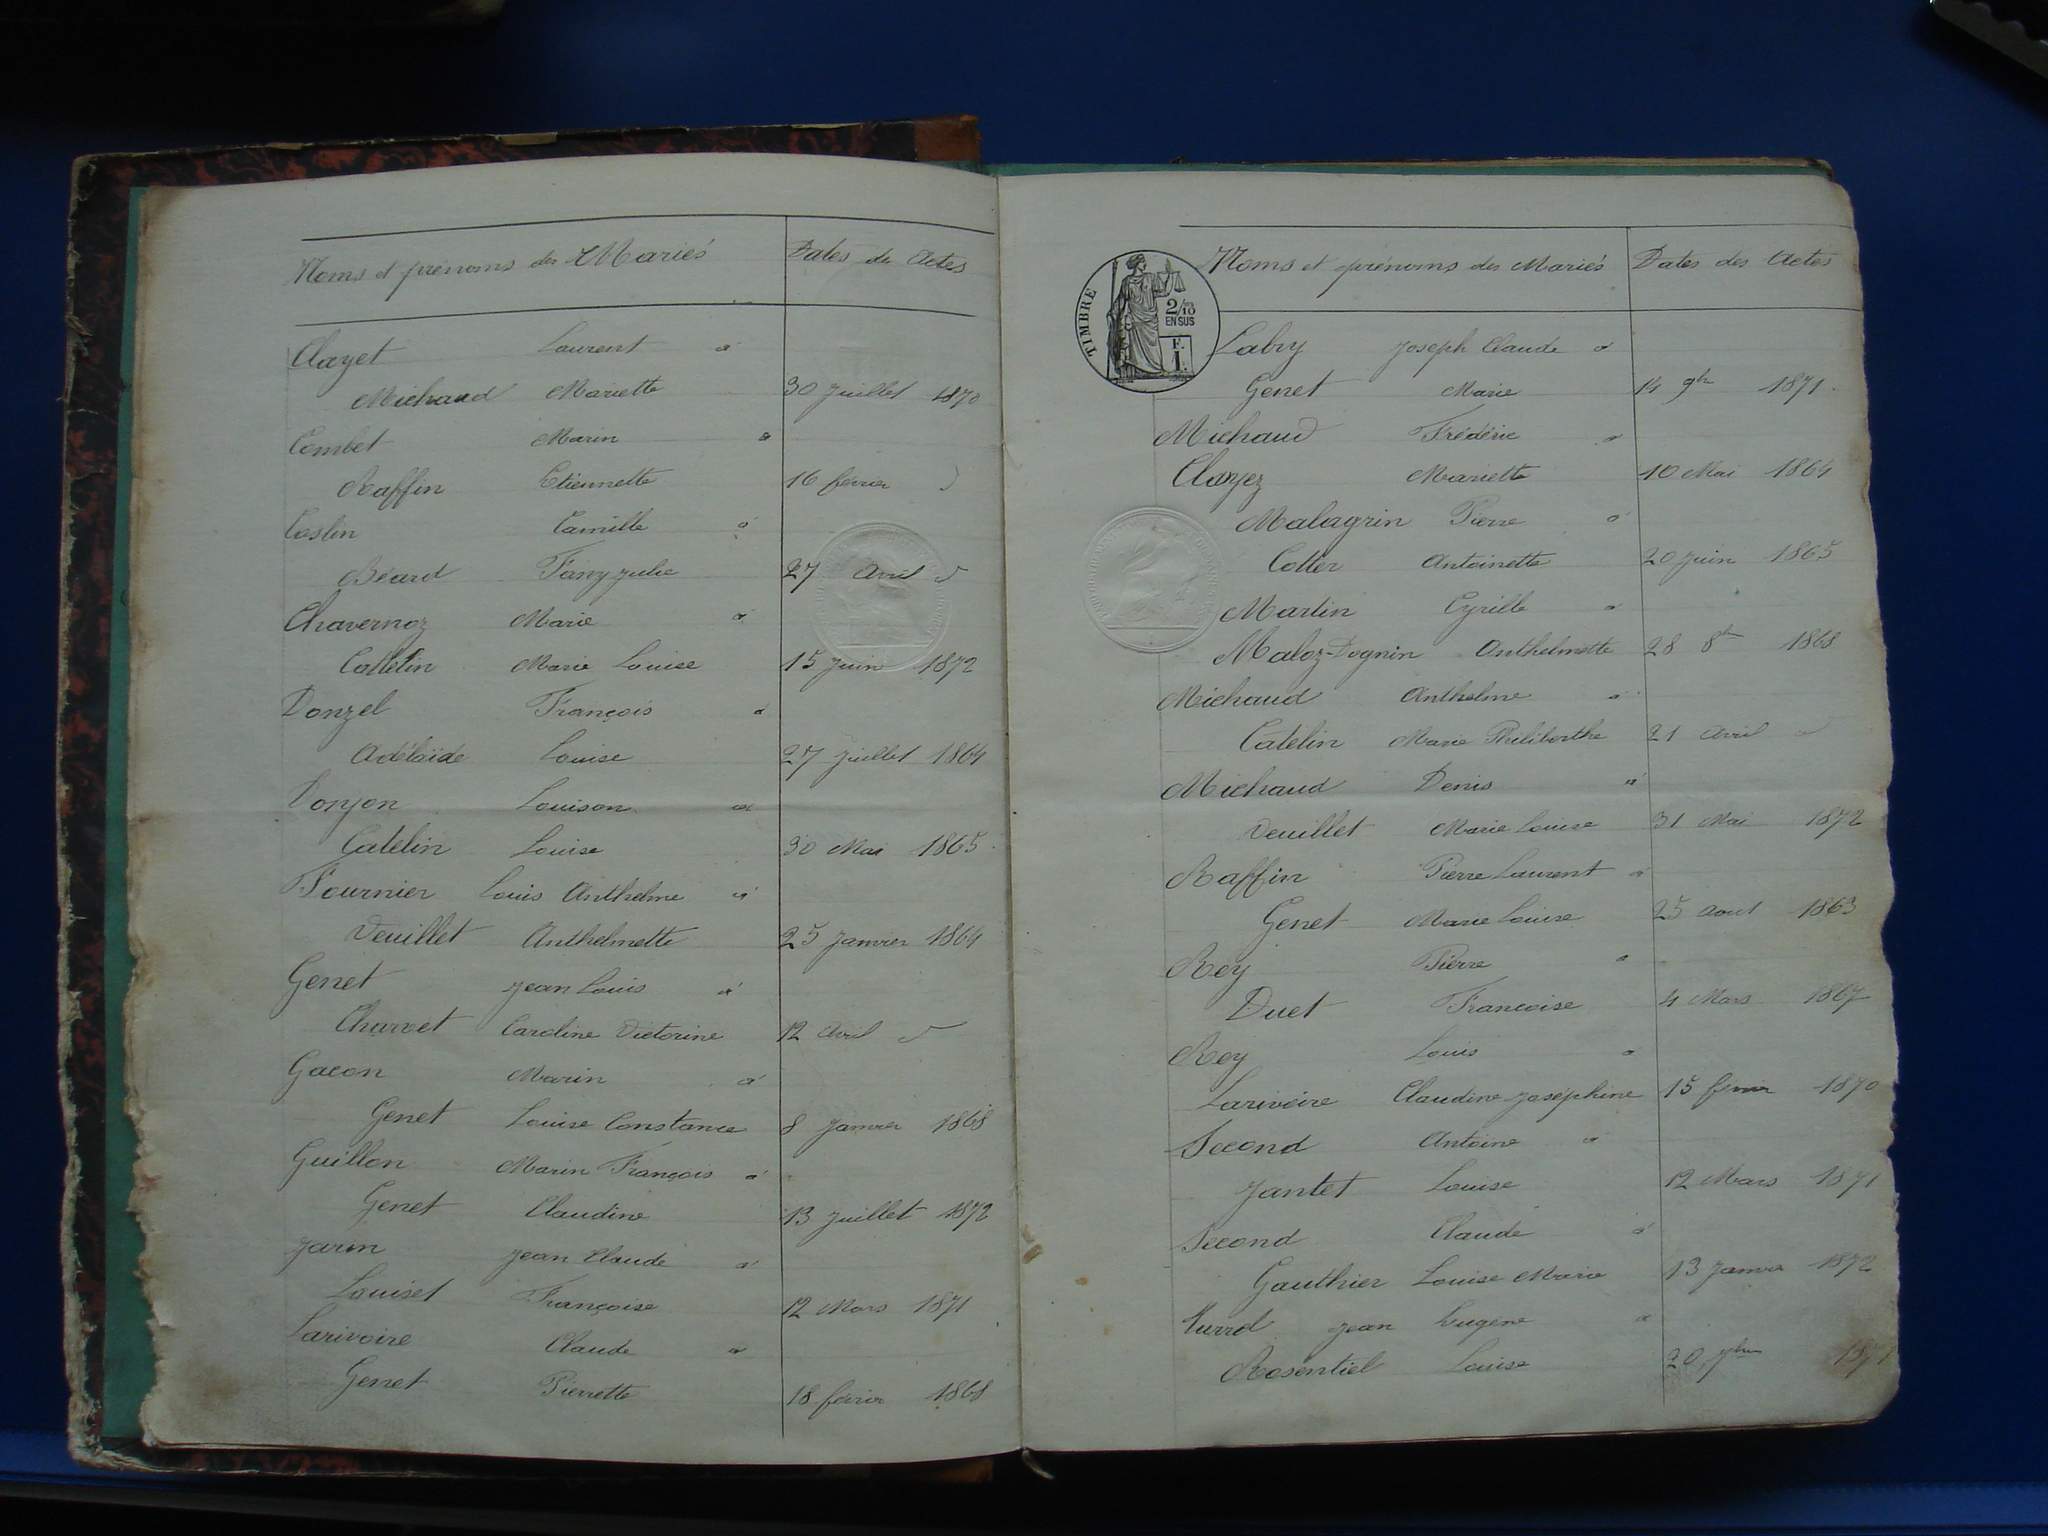 Noms et prénoms des Mariés Dates des Actes
Clayet Laurent à
Michaud Mariette 30 Juillet 1870
Combet Marin à
Raffin Etiennette 16 février d
Coslin Camille à
Béard Fany Julie 27 Avril d
Chavernoz Marie à
Catelin Marie Louise 15 Juin 1872
Donzel François à
Adélaïde Louise 27 Juillet 1864
Donjon Louison à
Catelin Louise 30 Mai 1865
Fournier Louis Anthelme à
Deuillet Anthelmette 25 Janvier 1864
Genet Jean Louis à
Charvet Caroline Victorine 12 Avril d
Gacon Marin à
Genet Louise Constance 8 Janvier 1868
Guillon Marin François à
Genet Claudine 13 Juillet 1872
Jarin Jean Claude à
Louiset Françoise 12 Mars 1871
Larivoire Claude à
Genet Pierrette 18 février 1868
TIMBRE
2/10
EN SUS
F.
1.
Noms et prénoms des Mariés Dates des Actes
Labry Joseph Claude à
Genet Marie 14 9bre 1871
Michaud Frédéric à
Clayez Mariette 10 Mai 1864
Malagrin Pierre à
Cotter Antoinette 20 Juin 1865
Martin Cyrille à
Maloz-Dognin Anthelmette 28 8bre 1868
Michaud Anthelme à
Catelin Marie Philiberthe 21 Avril d
Michaud Denis à
Deuillet Marie Louise 31 Mai 1872
Raffin Pierre Laurent à
Genet Marie Louise 25 Aout 1863
Rey Pierre à
Duet Francoise 4 Mars 1867
Rey Louis à
Larivoire Claudine Joséphine 15 février 1870
Second Antoine à
Jantet Louise 12 Mars 1871
Second Claude à
Gauthier Louise Marie 13 Janvier 1872
Jean Eugène à
Rosentiel Louise 20